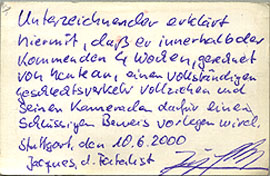 Unterzeichnender erklärt
hiermit, daß er innerhalb der
kommenden 4 Wochen, gerechnet
von heute an, einen vollständigen
Geschlechtsverkehr vollziehen und
seinen Kameraden dafür einen
schlüssigen Beweis vorlegen wird.
Stuttgart, den 10.6.2000
Jacques, d. Fatalist